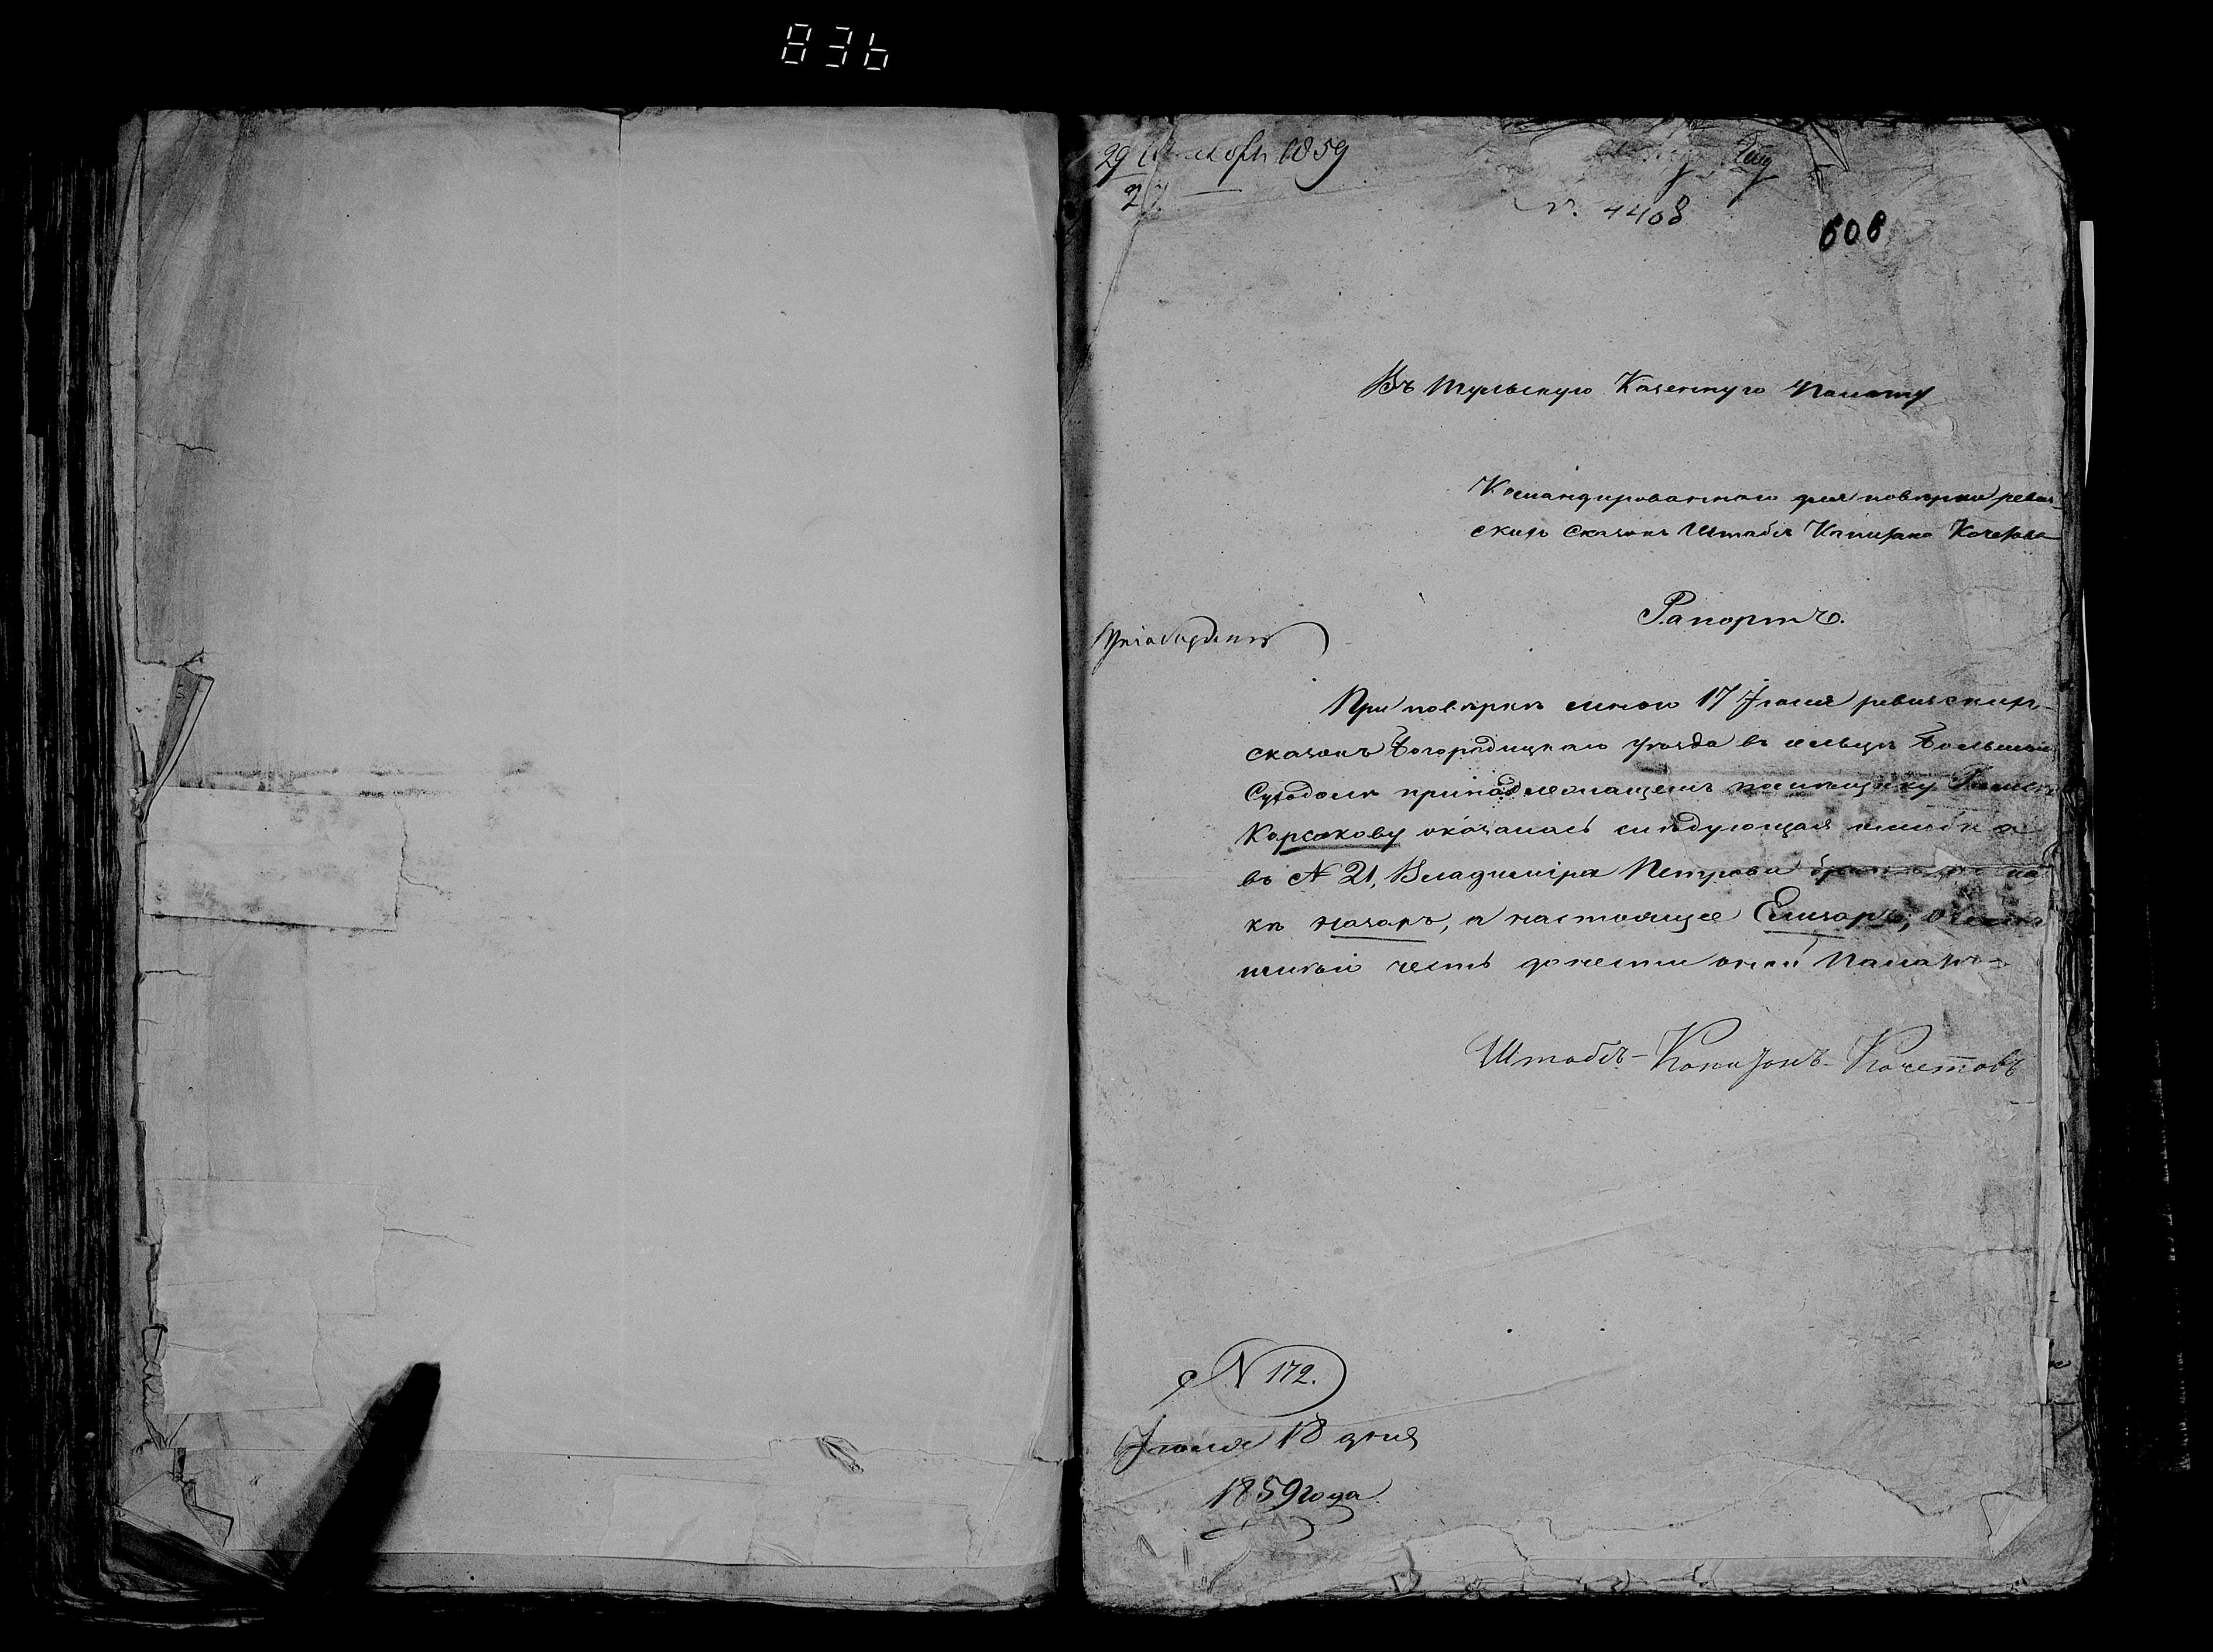 836
29 Октября 1859
27
№ 4408
608
Въ Тульскую Казенную Палату
Командированнаго для поверки ревиз-
скихъ сказокъ Штабсъ Капитана Кочетова
Рапортъ.
При поверке мною 17 Іюля ревизскихъ
сказокъ Богородицкаго уезда въ сельце Большомъ
Суходоле принадлежащемъ помещику Римск.
Корсакову оказалась следующая ошибка
въ № 21, Владиміра Петрова
ке Назаръ, а настоящее Елизаръ, о чемъ
имею честь донести оной Палате
Штабсъ-Капитанъ-Кочетовъ
№ 172.
Іюля 18 дня
1859 года